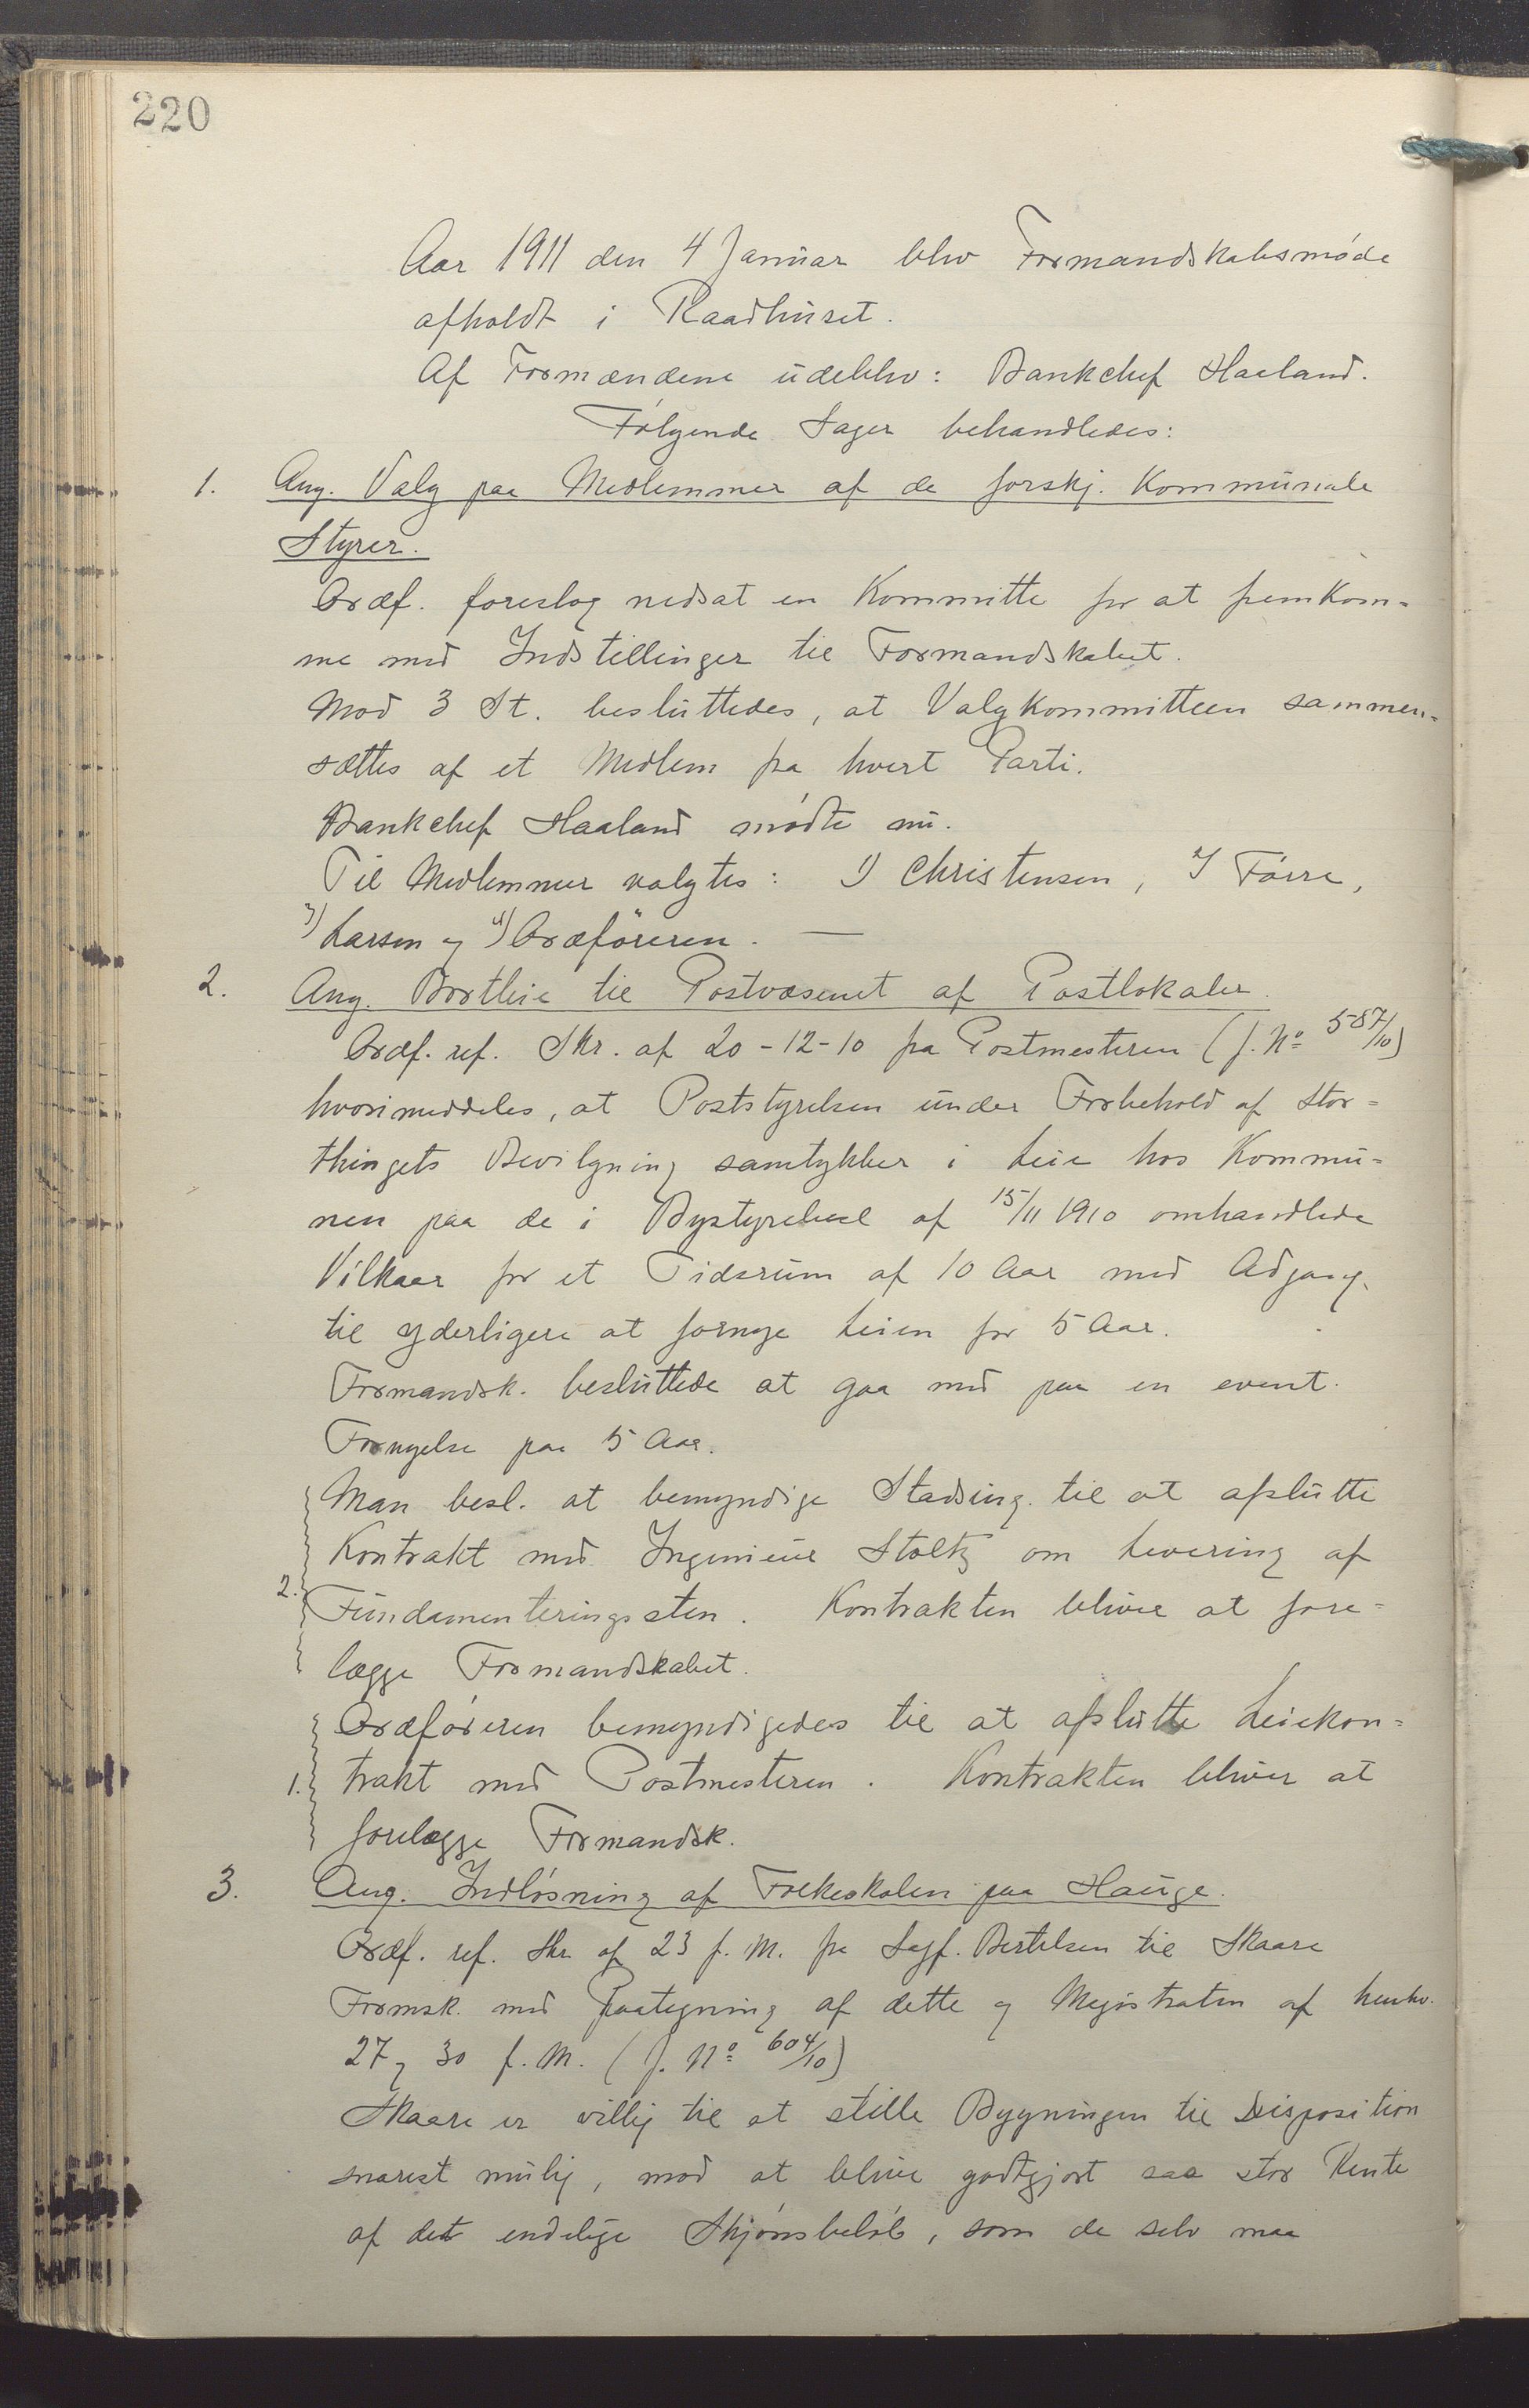 220
Aar 1911 den 4 Januar blev Formandskabsmøde
afholdt i Raadhuset.
Af Formændene udeblev: Bankchef Haaland.
Følgende Sager behandledes:
1. Ang. Valg paa Medlemmer af de forskj. Kommunale
Styrer.
Ordf. foreslog nedsat en Kommitte for at fremkom=
me med Indstillinger til Formandskabet.
Mod 3 St. besluttedes, at Valgkommitteen sammen=
sættes af et Medlem fra hvert Parti.
Bankchef Haaland mødte nu.
Til Medlemmer valgtes: 1) Christensen, 2) Førre,
3) Larsen og 4) Ordføreren. —
2. Ang. Bortleie til Postvæsenet af Postlokaler.
Ordf. ref. Skr. af 20-12-10 fra Postmesteren (J. No 587/10)
hvori meddeles, at Poststyrelsen under Forbehold af Stor=
thingets Bevilgning samtykker i Leie hos Kommu=
nen paa de i Bystyrebesl af 15/11 1910 omhandlede
Vilkaar for et Tidsrum af 10 Aar med Adgang
til yderligere at fornye Leien for 5 Aar.
Formandsk. besluttede at gaa med paa en event.
Fornyelse paa 5 Aar.
Man besl. at bemyndige Stadsing. til at afslutte
Kontrakt med Ingeniør Stoltz om Levering af
2. Fundamenteringssten. Kontrakten bliver at fore=
lægge Formandskabet.
Ordføreren bemyndigedes til at afslutte Leiekon=
1. trakt med Postmesteren. Kontrakten bliver at
forelægge Formandsk.
3. Ang. Indløsning af Folkeskolen paa Hauge.
Ordf. ref. Skr. af 23 f. M. fra Sagf. Bertelsen til Skaare
Formsk. med Paategning af dette og Magistraten af henhv.
27 og 30 f. M. (J. No 604/10)
Skaare er villig til at stille Bygningen til Disposition
snarest mulig, mod at blive godtgjort saa stor Rente
af det endelige Skjønsbeløb, som de selv maa